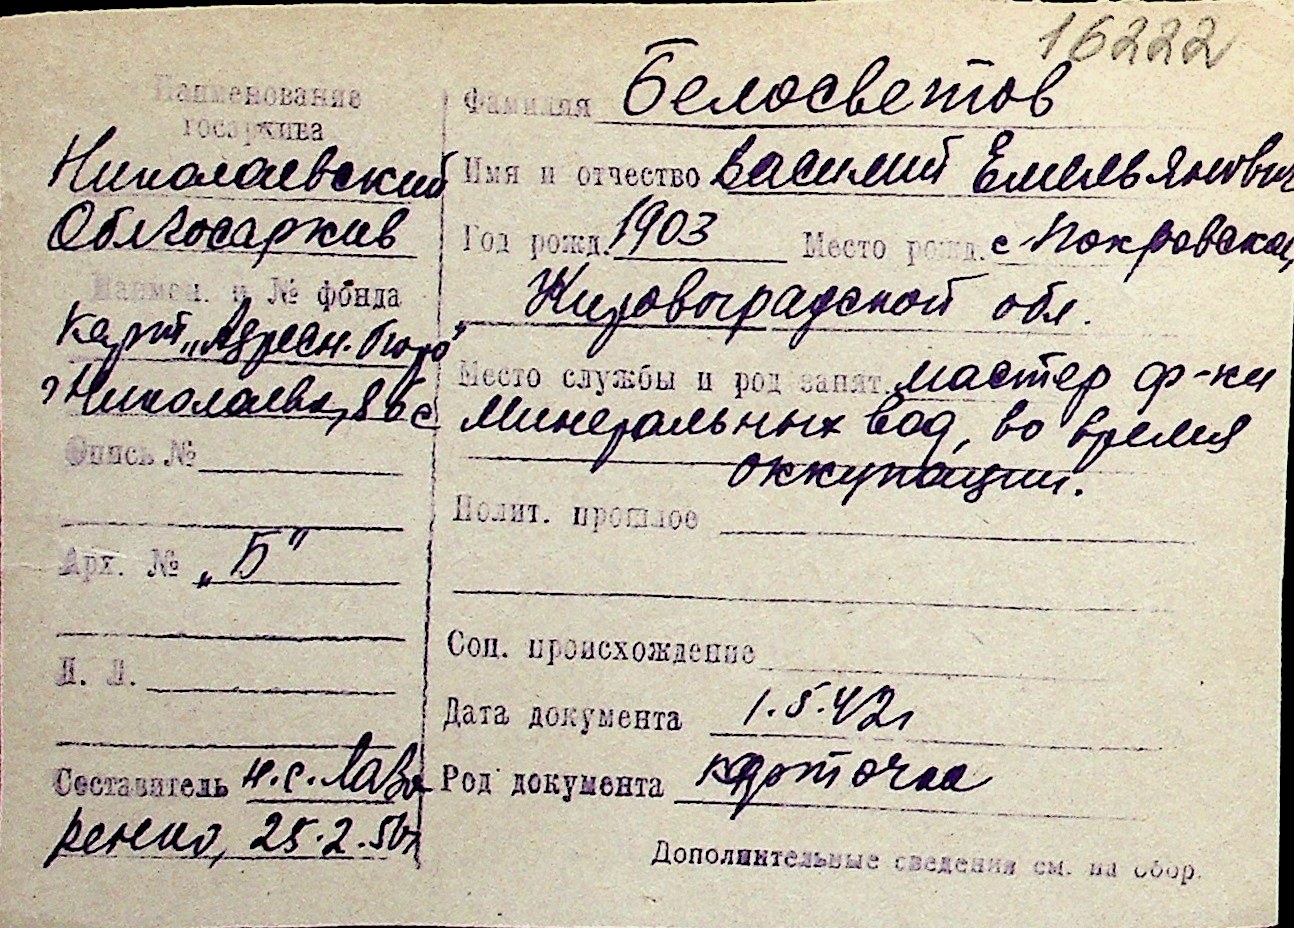 16222
Наименование
госархива
Николаевский
Облгосархив
Наимен. и № фонда
Карт. „Адресн. бюро"
г Николаева,
Опись №
Арх. № „Б"
Л. Л.
Составитель н.с. Лавз
ренко, 25.2.50г
Фамилия Белосветов
Имя и отчество Василий Емельянович
Год рожд. 1903 Место рожд. с Покровское,
Кировоградской обл.
Место службы и род занят. мастер ф-ки
минеральных вод, во время
оккупации.
Полит. прошлое
Соц. происхождение
Дата документа 1.5.42г
Род документа карточка
Дополнительные сведения см. на обор.